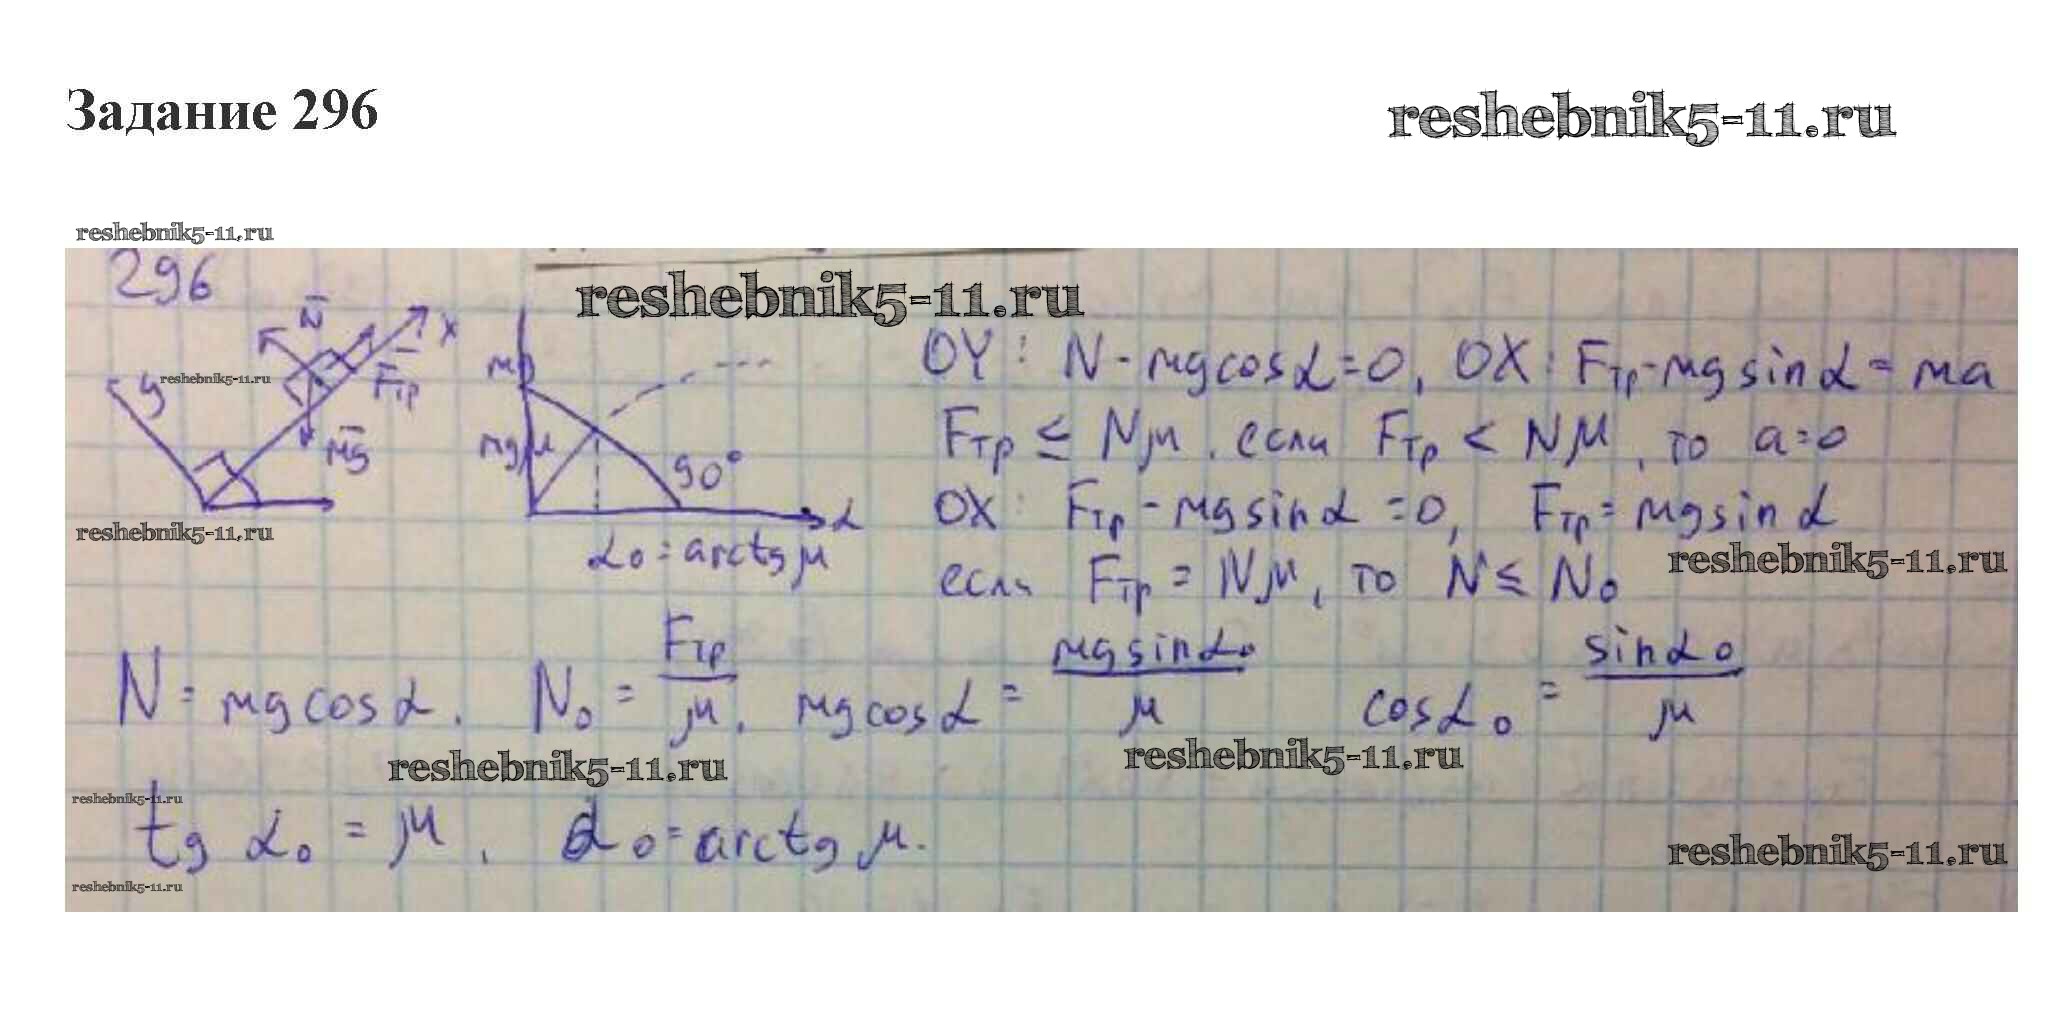 Задание 296
reshebnik5-11.ru
reshebnik5-11.ru
296
reshebnik5-11.ru
N̄
X
y
reshebnik5-11.ru
F̄тр
m̄g
mg
mgμ
90°
α
α₀ = arctg μ
reshebnik5-11.ru
OY: N - mg cos α = 0, OX: Fтр - mg sin α = ma
Fтр ≤ Nμ. если Fтр < Nμ, то a = 0
OX: Fтр - mg sin α = 0, Fтр = mg sin α
reshebnik5-11.ru
если Fтр = Nμ, то N ≤ N₀
N = mg cos α. N₀ = Fтр/μ. mg cos α = mg sin α₀/μ cos α₀ = sin α₀/μ
reshebnik5-11.ru reshebnik5-11.ru
reshebnik5-11.ru
tg α₀ = μ, α₀ = arctg μ.
reshebnik5-11.ru
reshebnik5-11.ru